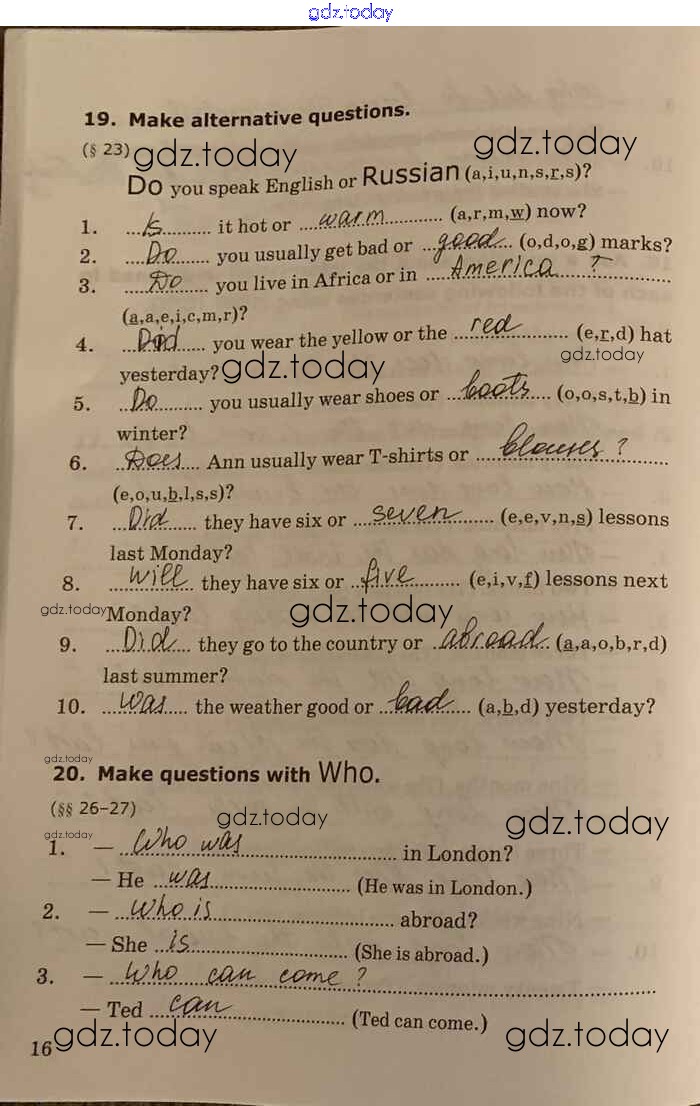 gdz.today
19. Make alternative questions.
(§ 23) gdz.today gdz.today
Do you speak English or Russian (a,i,u,n,s,r,s)?
1. ...Is.......... it hot or ...warm............ (a,r,m,w) now?
2. ...Do....... you usually get bad or ...good... (o,d,o,g) marks?
3. ...Do....... you live in Africa or in ...America...?............
(a,a,e,i,c,m,r)?
4. ...Did....... you wear the yellow or the ...red............ (e,r,d) hat
gdz.today
yesterday? gdz.today
5. ...Do.......... you usually wear shoes or ...boots.... (o,o,s,t,b) in
winter?
6. ...Does.... Ann usually wear T-shirts or ...blouses?.......
(e,o,u,b,l,s,s)?
7. ...Did...... they have six or ...seven....... (e,e,v,n,s) lessons
last Monday?
8. ...will...... they have six or ...five.......... (e,i,v,f) lessons next
gdz.today Monday? gdz.today
9. ...Did.... they go to the country or ...abroad.. (a,a,o,b,r,d)
last summer?
10. ...Was...... the weather good or ...bad....... (a,b,d) yesterday?
gdz.today
20. Make questions with Who.
(§§ 26–27) gdz.today gdz.today
gdz.today
1. — ...Who was............................ in London?
— He ...was............................ (He was in London.)
2. — ...Who is............................ abroad?
— She ...is............................ (She is abroad.)
3. — ...Who can come?............................
— Ted ...can............................ (Ted can come.)
16 gdz.today gdz.today